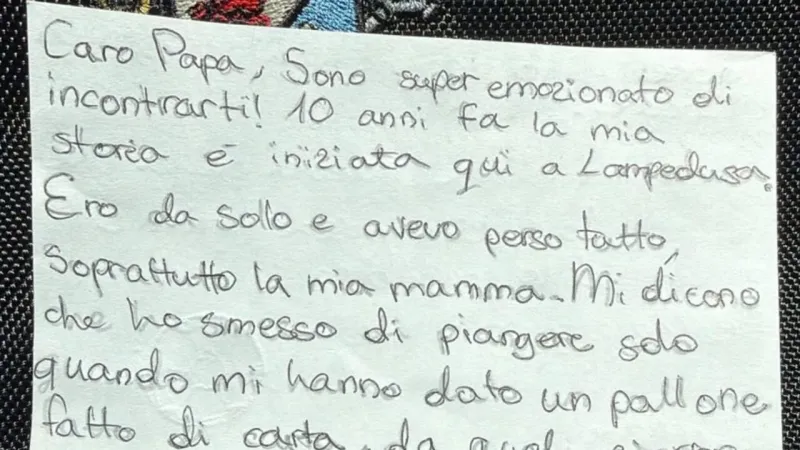 Caro Papa, Sono super emozionato di
incontrarti! 10 anni fa la mia
storia è iniziata qui a Lampedusa.
Ero da sollo e avevo perso tutto,
soprattutto la mia mamma. Mi dicono
che ho smesso di piangere solo
quando mi hanno dato un pallone
fatto di carta, da quel